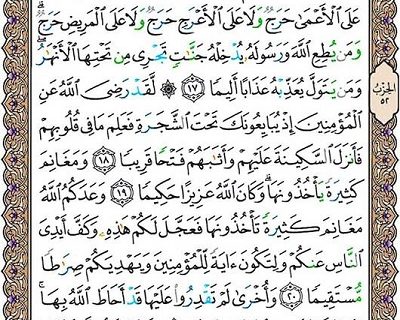 عَلَى ٱلْأَعْمَىٰ حَرَجٌ وَلَا عَلَى ٱلْأَعْرَجِ حَرَجٌ وَلَا عَلَى ٱلْمَرِيضِ حَرَجٌ ۗ
وَمَن يُطِعِ ٱللَّهَ وَرَسُولَهُۥ يُدْخِلْهُ جَنَّٰتٍ تَجْرِى مِن تَحْتِهَا ٱلْأَنْهَٰرُ ۖ
وَمَن يَتَوَلَّ يُعَذِّبْهُ عَذَابًا أَلِيمًا ١٧ ۞ لَّقَدْ رَضِىَ ٱللَّهُ عَنِ
ٱلْمُؤْمِنِينَ إِذْ يُبَايِعُونَكَ تَحْتَ ٱلشَّجَرَةِ فَعَلِمَ مَا فِى قُلُوبِهِمْ
فَأَنزَلَ ٱلسَّكِينَةَ عَلَيْهِمْ وَأَثَٰبَهُمْ فَتْحًا قَرِيبًا ١٨ وَمَغَانِمَ
كَثِيرَةً يَأْخُذُونَهَا ۗ وَكَانَ ٱللَّهُ عَزِيزًا حَكِيمًا ١٩ وَعَدَكُمُ ٱللَّهُ
مَغَانِمَ كَثِيرَةً تَأْخُذُونَهَا فَعَجَّلَ لَكُمْ هَٰذِهِۦ وَكَفَّ أَيْدِىَ
ٱلنَّاسِ عَنكُمْ وَلِتَكُونَ ءَايَةً لِّلْمُؤْمِنِينَ وَيَهْدِيَكُمْ صِرَٰطًا
مُّسْتَقِيمًا ٢٠ وَأُخْرَىٰ لَمْ تَقْدِرُوا۟ عَلَيْهَا قَدْ أَحَاطَ ٱللَّهُ بِهَا ۚ
الحِزْبُ
٥٢